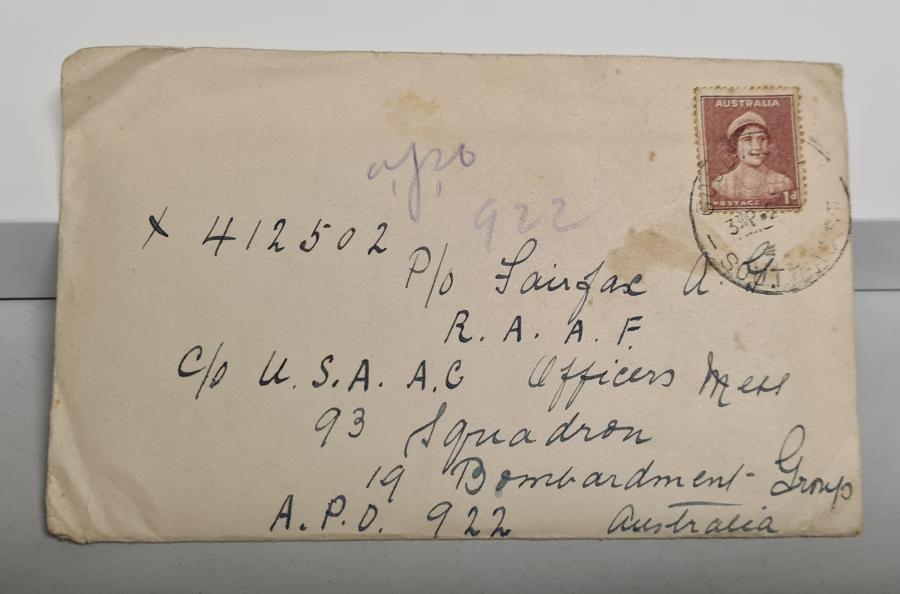 AUSTRALIA
POSTAGE 1d
apo
922
X 412502
P/o Fairfax A. G.
R. A. A. F.
C/o U. S. A. A. C Officers Mess
93 Squadron
19 Bombardment Group
A. P. O. 922 Australia